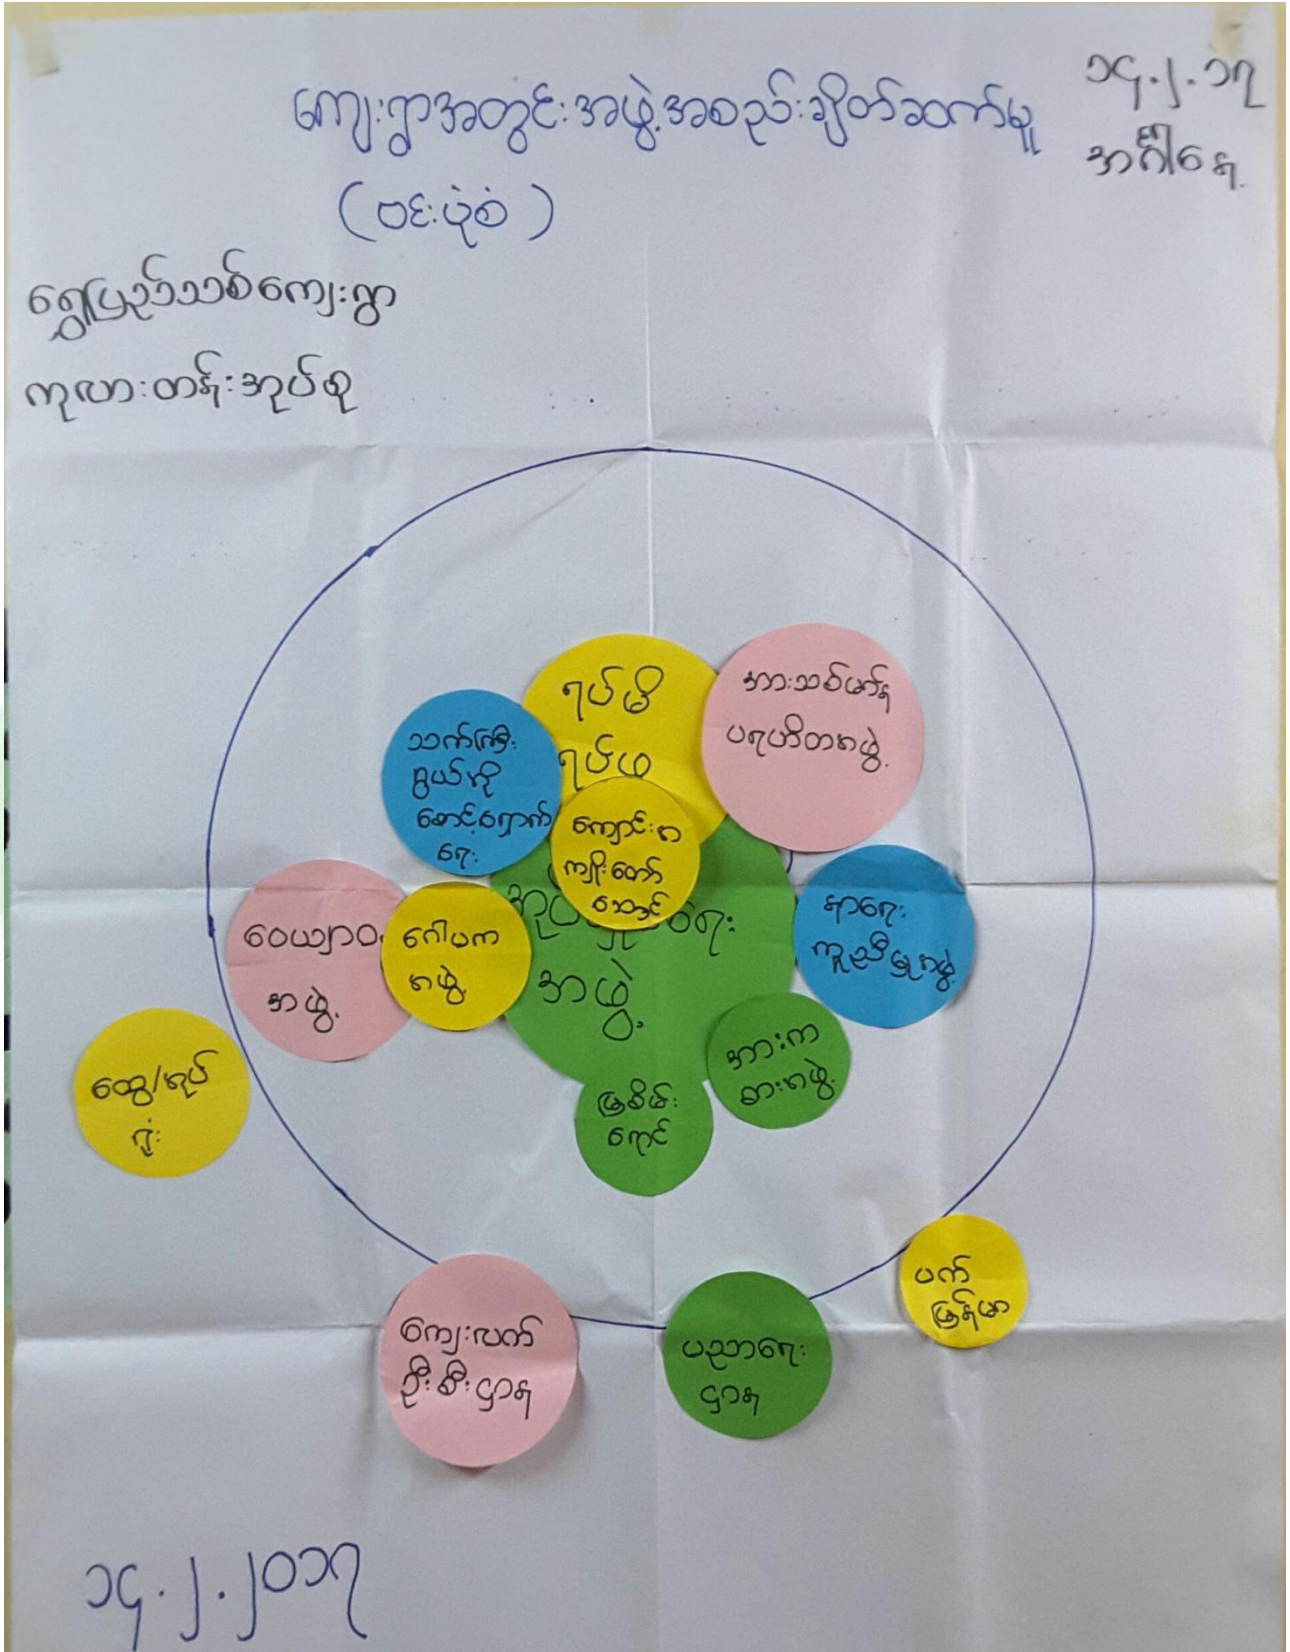 ကျေးရွာအတွင်းအဖွဲ့အစည်းချိတ်ဆက်မှု
(ဗင်းပုံစံ)
၁၄.၂.၁၇
အင်္ဂါနေ့
ရွှေပြည်သစ်ကျေးရွာ
ကုလားတန်းအုပ်စု
ရပ်မိ
ရပ်ဖ
အားသစ်မာန်
ပရဟိတအဖွဲ့
သက်ကြီး
ရွယ်အို
စောင့်ရှောက်
ရေး
ကျောင်းအ
ကျိုးတော်
ဆောင်
ရေး
အဖွဲ့
ဝေယျာဝ
အဖွဲ့
ဂေါပက
အဖွဲ့
နာရေး
ကူညီမှုအဖွဲ့
အားက
စားအဖွဲ့
မြစိမ်း
ရောင်
ထွေ/အုပ်
ရုံး
ကျေးလက်
ဦးစီးဌာန
ပညာရေး
ဌာန
ပက်
မြန်မာ
၁၄.၂.၂၀၁၇